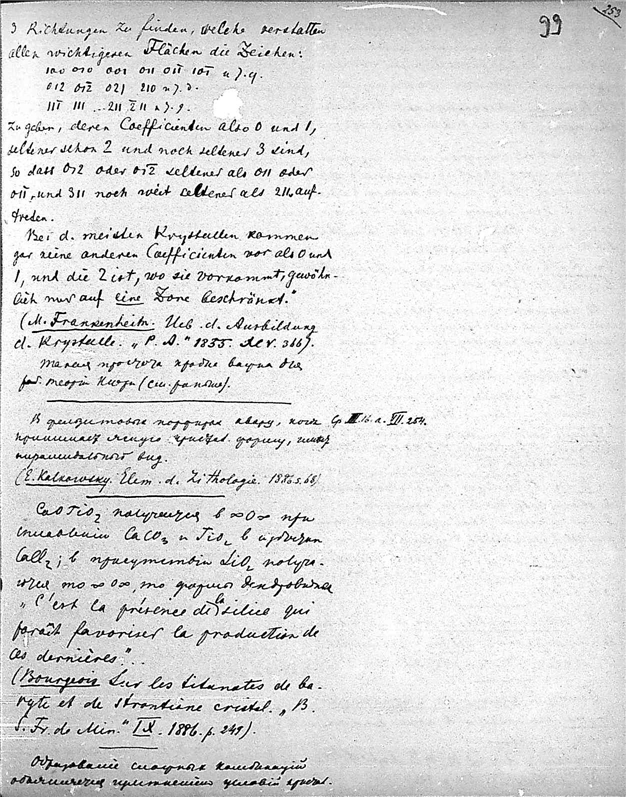 253
99
3 Richtungen zu finden, welche verstatten
allen wichtigeren Flächen die Zeichen:
100 010 001 011 01̅1̅ 101̅ u. s. g.
012 01̅2̅ 021 210 u. s. g.
11̅1̅ 111 ... 211 2̅11 u. s. g.
zu geben, deren Coefficienten also 0 und 1,
seltener schon 2 und noch seltener 3 sind,
so dass 012 oder 01̅2̅ seltener als 011 oder
01̅1̅, und 311 noch weit seltener als 211 auf-
treten.
Bei d. meisten Krystallen kommen
gar keine anderen Coefficienten vor als 0 und
1, und die 2 ist, wo sie vorkommt, gewöhn-
lich nur auf eine Zone beschränkt."
(M. Frankenheim. Ueb. d. Ausbildung
d. Krystalle. „P. A." 1855. XCV. 366).
крайне важна для
теории (см. раньше).
В фельзитовых порфирах кварц, Ср III.16.a. VII. 254.
форму,
пирамидальный вид.
(E. Kalkowsky. Elem. d. Lithologie. 1886 s. 68)
CaOTiO₂ получается в ∞O∞ при
сплавлении CaCO₃ и TiO₂ в
CaCl₂; в присутствии SiO₂ получа-
ются то ∞O∞, то формы дендровидные
„C'est la présence de la silice qui
paraît favoriser la production de
ces dernières"..
(Bourgeois Sur les titanates de ba-
ryte et de strontiane cristal. „B.
S. Fr. de Min." IX. 1886. p. 249).
Образование сложных комбинаций
объясняется условий крист.